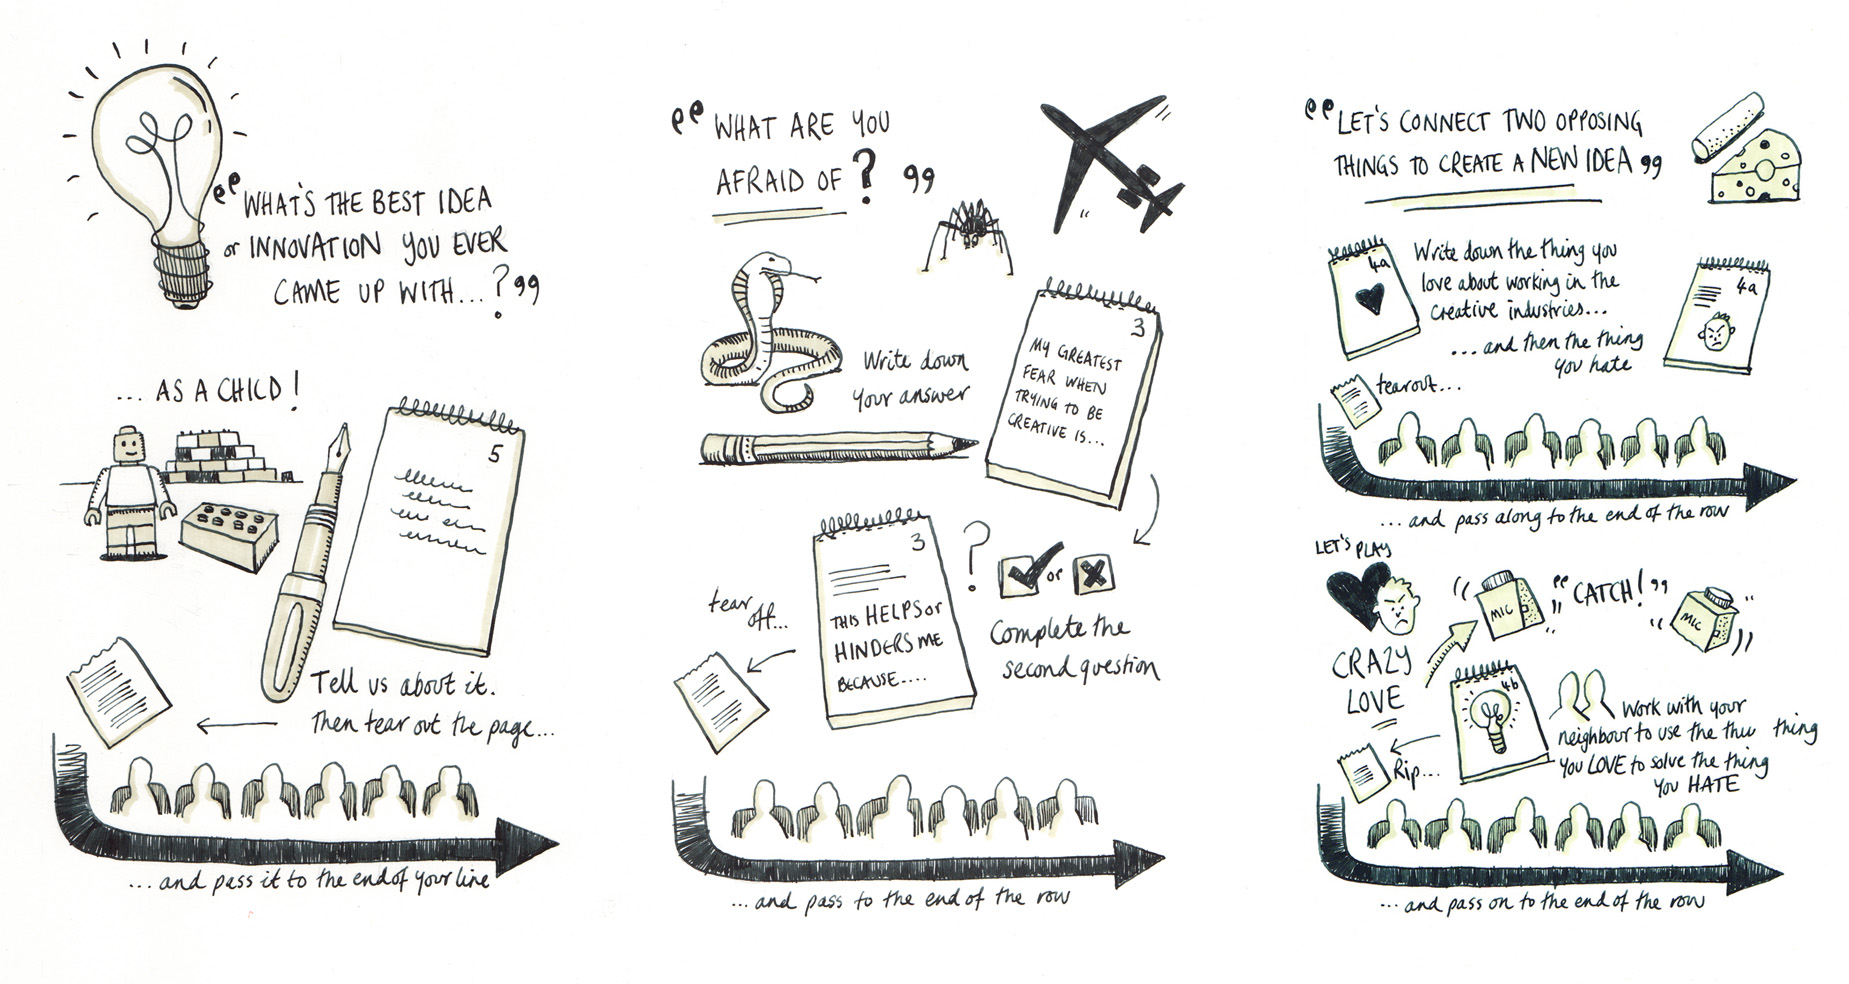 "WHAT'S THE BEST IDEA
or INNOVATION YOU EVER
CAME UP WITH...?"
... AS A CHILD!
5
Tell us about it.
Then tear out the page...
...and pass it to the end of your line
"WHAT ARE YOU
AFRAID OF?"
Write down
your answer
3
MY GREATEST
FEAR WHEN
TRYING TO BE
CREATIVE IS...
3
THIS HELPS or
HINDERS ME
BECAUSE....
?
or
Complete the
second question
tear
off...
...and pass to the end of the row
"LET'S CONNECT TWO OPPOSING
THINGS TO CREATE A NEW IDEA"
4a
Write down the thing you
love about working in the
creative industries...
...and then the thing
you hate
4a
tearout...
...and pass along to the end of the row
LET'S PLAY
CRAZY
LOVE
MIC
"CATCH!"
MIC
4b
Work with your
neighbour to use the thing
you LOVE to solve the thing
you HATE
Rip...
...and pass on to the end of the row